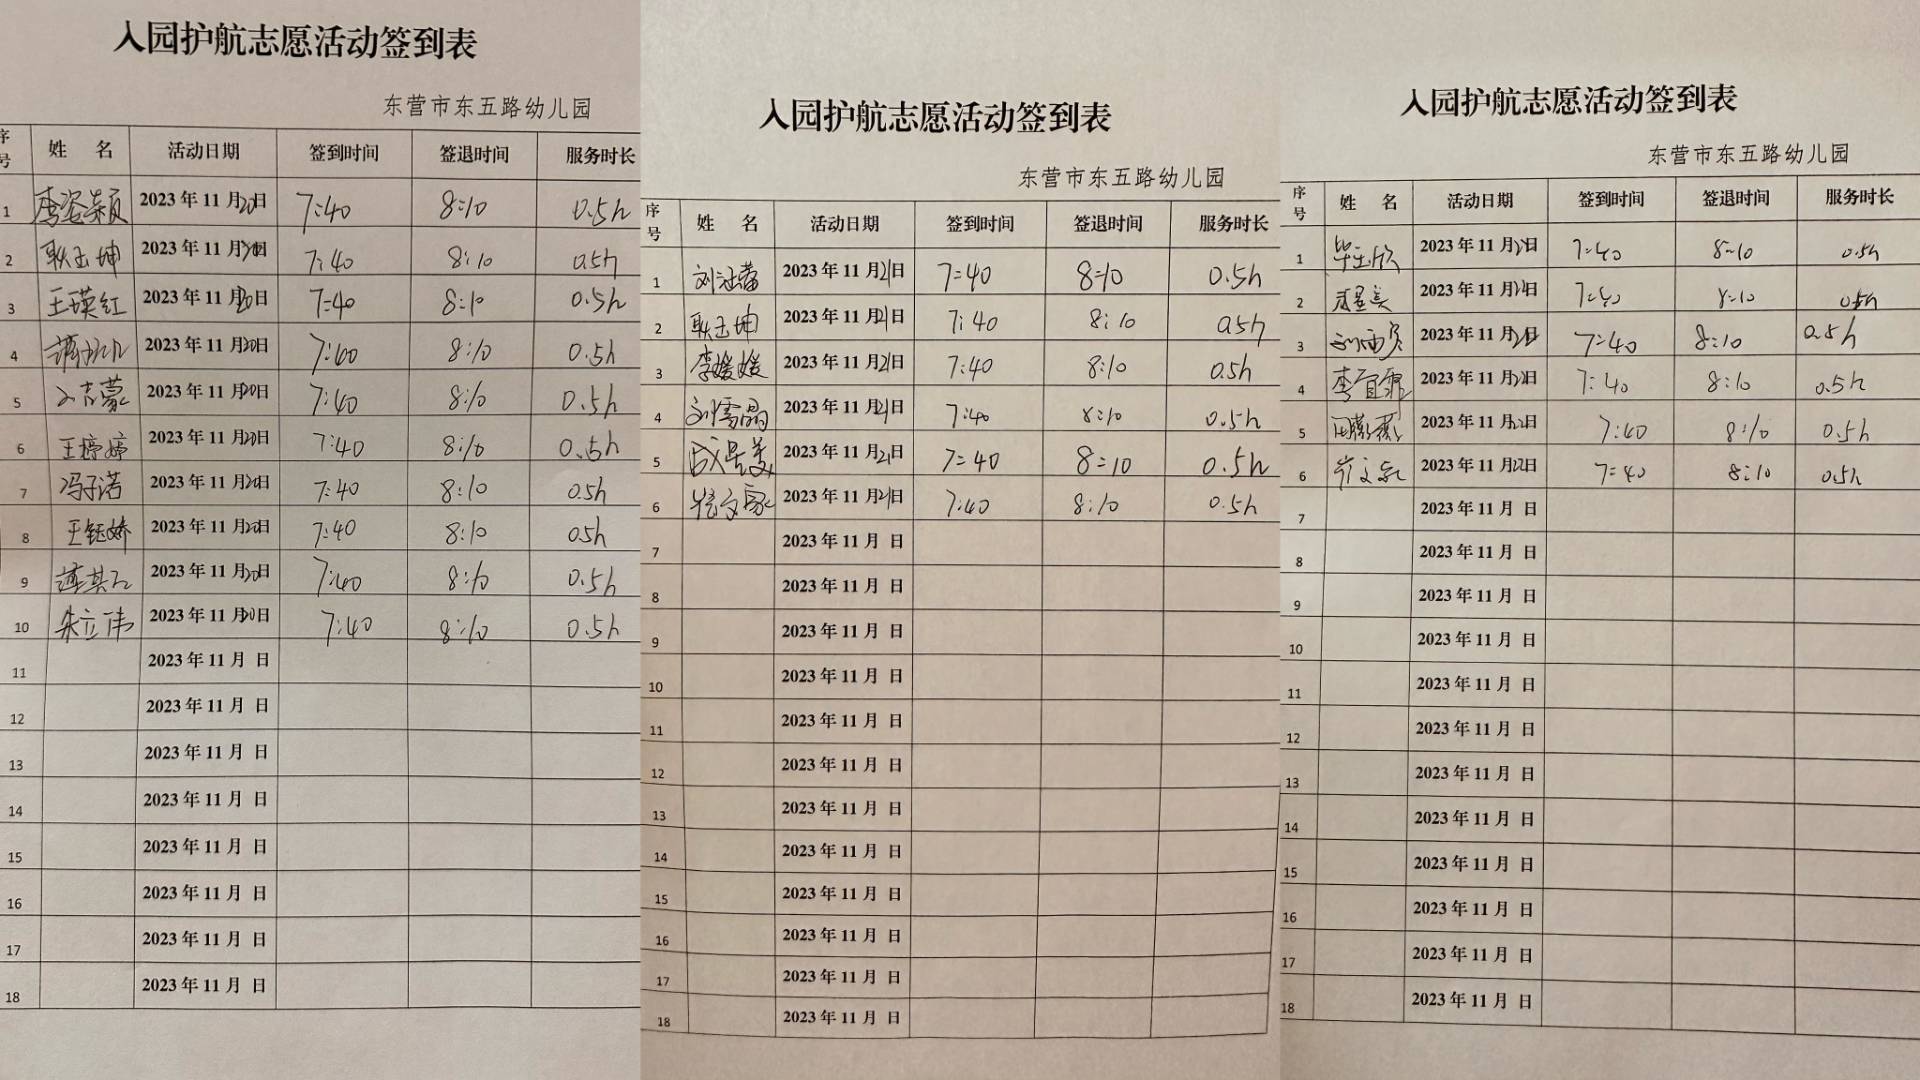 入园护航志愿活动签到表
东营市东五路幼儿园
序号 姓 名 活动日期 签到时间 签退时间 服务时长
1 李姿颖 2023年11月20日 7:40 8:10 0.5h
2 耿玉坤 2023年11月20日 7:40 8:10 0.5h
3 王瑛红 2023年11月20日 7:40 8:10 0.5h
4 2023年11月20日 7:40 8:10 0.5h
5 2023年11月20日 7:40 8:10 0.5h
6 王婷婷 2023年11月20日 7:40 8:10 0.5h
7 冯子诺 2023年11月20日 7:40 8:10 0.5h
8 王钰娇 2023年11月20日 7:40 8:10 0.5h
9 2023年11月20日 7:40 8:10 0.5h
10 朱立伟 2023年11月20日 7:40 8:10 0.5h
11 2023年11月 日
12 2023年11月 日
13 2023年11月 日
14 2023年11月 日
15 2023年11月 日
16 2023年11月 日
17 2023年11月 日
18 2023年11月 日
入园护航志愿活动签到表
东营市东五路幼儿园
序号 姓 名 活动日期 签到时间 签退时间 服务时长
1 2023年11月21日 7:40 8:10 0.5h
2 耿玉坤 2023年11月21日 7:40 8:10 0.5h
3 李媛媛 2023年11月21日 7:40 8:10 0.5h
4 刘雪晶 2023年11月21日 7:40 8:10 0.5h
5 2023年11月21日 7:40 8:10 0.5h
6 2023年11月21日 7:40 8:10 0.5h
7 2023年11月 日
8 2023年11月 日
9 2023年11月 日
10 2023年11月 日
11 2023年11月 日
12 2023年11月 日
13 2023年11月 日
14 2023年11月 日
15 2023年11月 日
16 2023年11月 日
17 2023年11月 日
18 2023年11月 日
入园护航志愿活动签到表
东营市东五路幼儿园
序号 姓 名 活动日期 签到时间 签退时间 服务时长
1 2023年11月 日 7:40 8:10 0.5h
2 2023年11月 日 7:40 8:10 0.5h
3 2023年11月 日 7:40 8:10 0.5h
4 李宜霏 2023年11月 日 7:40 8:10 0.5h
5 2023年11月 日 7:40 8:10 0.5h
6 2023年11月22日 7:40 8:10 0.5h
7 2023年11月 日
8 2023年11月 日
9 2023年11月 日
10 2023年11月 日
11 2023年11月 日
12 2023年11月 日
13 2023年11月 日
14 2023年11月 日
15 2023年11月 日
16 2023年11月 日
17 2023年11月 日
18 2023年11月 日